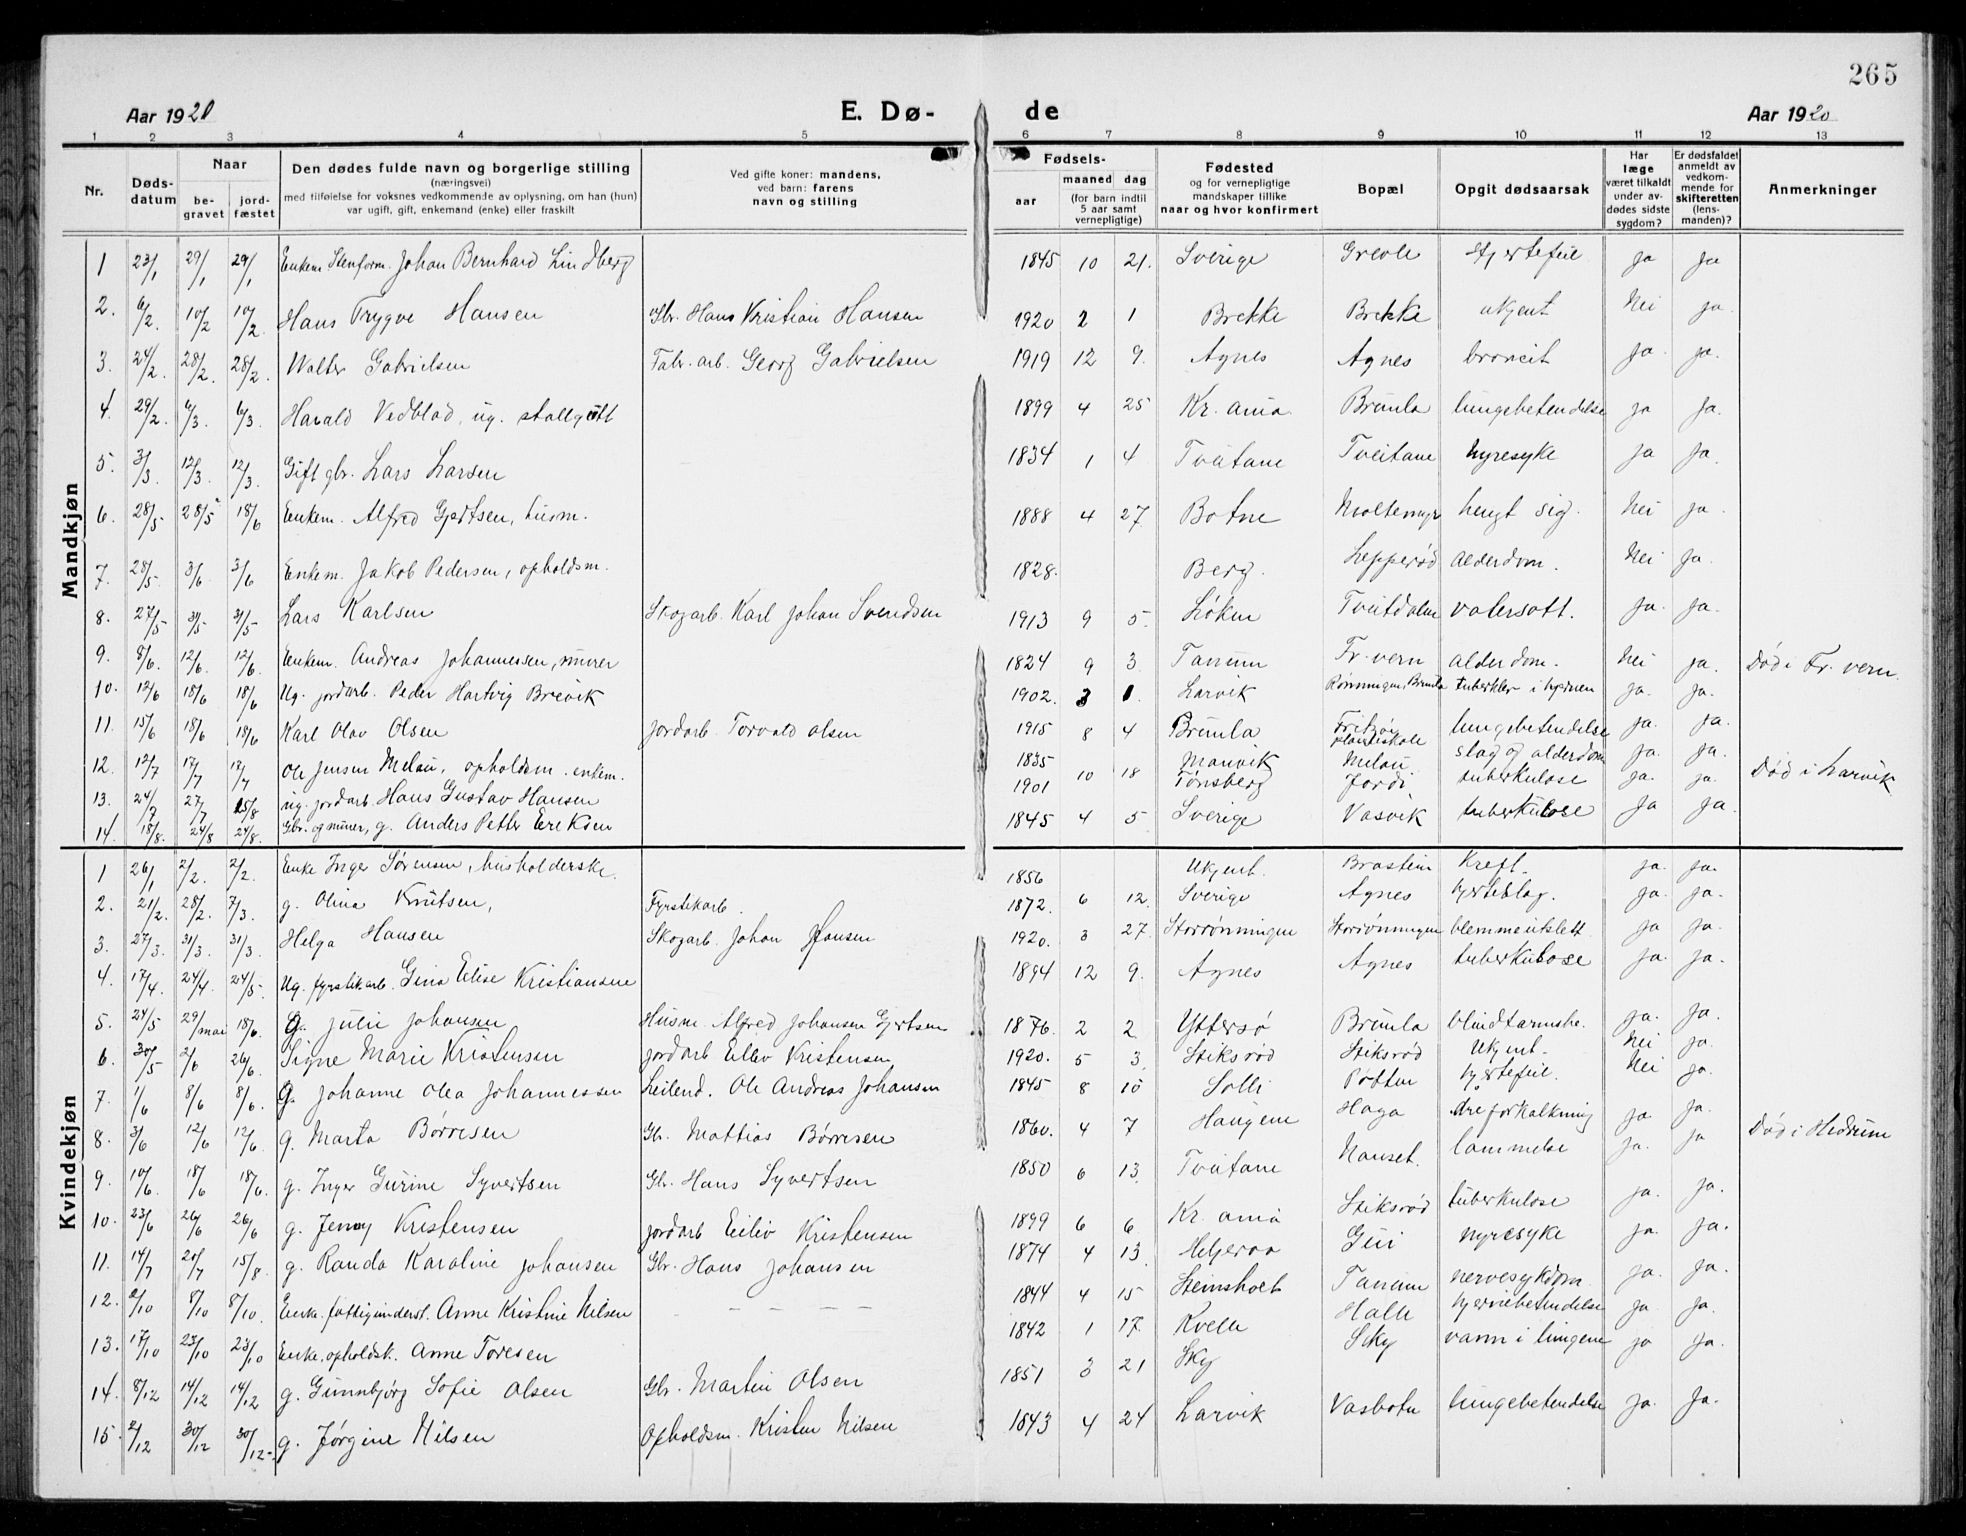 265
Aar 1920 E. Dø- de Aar 1920
1 2 3 4 5 6 7 8 9 10 11 12 13
Nr. Dødsdatum Naar begravet jordfæstet Den dødes fulde navn og borgerlige stilling (næringsvei) med tilføielse for voksnes vedkommende av oplysning, om han (hun) var ugift, gift, enkemand (enke) eller fraskilt Ved gifte koner: mandens, ved barn: farens navn og stilling Fødsels- aar maaned dag (for barn indtil 5 aar samt vernepligtige) Fødested og for vernepligtige mandskaper tillike naar og hvor konfirmert Bopæl Opgit dødsaarsak Har læge været tilkaldt under avdødes sidste sygdom? Er dødsfaldet anmeldt av vedkommende for skifteretten (lensmanden)? Anmerkninger
Mandkjøn
1 23/1 29/1 29/1 Enkem. Stenform. Johan Bernhard Lindberg 1845 10 21. Sverige Grevle Hjertefeil ja ja
2. 6/2. 10/2 10/2. Hans Trygve Hansen Gbr. Hans Kristian Hansen 1920 2 1 Brekke Brekke ukjent Nei ja.
3. 24/2. 28/2. 28/2. Walter Gabrielsen Fabr. arb. Georg Gabrielsen 1919 12 9. Agnes Agnes broncit ja. ja.
4. 29/2. 6/3. 6/3. Harald Vedblad, ug. stallgutt 1899 4 25 Kr. ania Brunla lungebetendelse ja ja.
5. 3/3. 12/3. 12/3. Gift gbr. Lars Larsen 1834 1 4 Tveitane Tveitane nyresyke ja ja.
6. 28/5 28/5 18/6 Enkem. Alfred Gjertsen, husm. 1888 4 27 Botne hengt sig. Nei ja.
7. 28/5. 3/6. 3/6 Enkem. Jakob Pedersen, opholdsm. 1828. Berg. Lepperød alderdom. Nei ja.
8. 27/5 31/5 31/5 Lars Karlsen Skogarb. Karl Johan Svendsen 1913 9 5. Løken Tveitdalen vatersott. ja. ja.
9. 8/6. 12/6. 12/6. Enkem. Andreas Johannessen, murer 1824 9 3. Tanum Fr. vern alderdom. Nei ja. Død i Fr. vern.
10. 12/6 18/6 18/6 Ug. jordarb. Peder Hartvig Brevik 1902. 3 1. Larvik Rønningen, Brunla tuberkler i hjernen ja. ja.
11. 15/6 18/6 18/6 Karl Olav Olsen Jordarb. Torvald Olsen 1915 8 4 Brunla Fritzøe planteskole lungebetendelse ja. ja.
12. 12/7 17/7 18/7 Ole Jensen Melau, opholdsm. enkem. 1835 Manvik Melau slag og alderdom ja. ja.
13. 24/7 27/7 15/8 ug. jordarb. Hans Gustav Hansen 1901 10 18 Tønsberg Jordi tuberkulose ja. ja. Død i Larvik
14. 18/8. 24/8 24/8. Gbr. og murer, g. Anders Petter Eriksen 1845 4 5 Sverige Vasvik tuberkulose ja ja.
Kvindekjøn
1 26/1 2/2. 2/2. Enke Inger Sørensen, husholderske. 1856 Ukjent. Brastein Kreft. ja. ja.
2. 21/2. 28/2. 7/3. g. Olina Knutsen, Fyrstikarb. 1872. 6 12. Sverige Agnes hjerteslag. ja. ja.
3. 27/3. 31/3. 31/3. Helga Hansen Skogarb. Johan Hansen 1920. 3 27. Storrønningen Storrønningen blemmeutslett ja ja.
4. 17/4. 24/4. 24/5. Ug. fyrstikarb. Gina Elise Kristiansen 1894 12 9. Agnes Agnes tuberkulose ja. ja.
5. 24/5 29/mai 18/6. g. Julie Johansen Husm. Alfred Johansen Gjertsen 1876. 2 2 Yttersø Brunla blindtarmsbe. ja. ja.
6. 30/5 2/6 26/6. Signe Marie Kristensen Jordarb Eiliv Kristensen 1920. 5 3. Stiksrød Stiksrød Ukjent. Nei ja.
7. 1/6 8/6 8/6. g. Johanne Olea Johannessen Leilend. Ole Andreas Johansen 1845 8 10 Solli Pøtten hjertefeil. Nei ja.
8. 3/6 12/6 12/6 g. Marta Børresen Gbr. Mattias Børresen 1860. 4 7 Haugene Haga åreforkalkning ja ja. Død i Hedrum
9. 10/6. 18/6 18/6. g. Inger Gurine Syvertsen Gbr. Hans Syvertsen 1850 6 13. Tveitane Nanset. lammelse ja. ja
10. 23/6 26/6 26/6 g. Jenny Kristensen Jordarb Eiliv Kristensen 1899 6 6 Kr. ania Stiksrød tuberkulose ja. ja.
11. 14/7 20/7 15/8. g. Randa Karoline Johansen Gbr. Hans Johansen 1874 4 13. Helgeroa Gui nyresyke ja. ja.
12. 2/10 8/10 8/10. Enke, fattigunderst. Anne Kristine Nilsen – – – – – 1844 4 15 Steinsholt Tanum nervesykdom ja. ja.
13. 17/10 23/10 23/10 Enke, opholdsk. Anne Toresen 1842 1 17. Kvelle Halle hjernebetendelse ja ja.
14. 8/12 14/12 14/12 g. Gunnbjørg Sofie Olsen Gbr. Martin Olsen 1851 3 21 Sky Sky vann i lungene ja ja.
15. 2/12 30/12 30/12. g. Jørgine Nilsen Opholdsm. Kristen Nilsen 1843 4 24 Larvik Vasbotn lungebetendelse ja. ja.